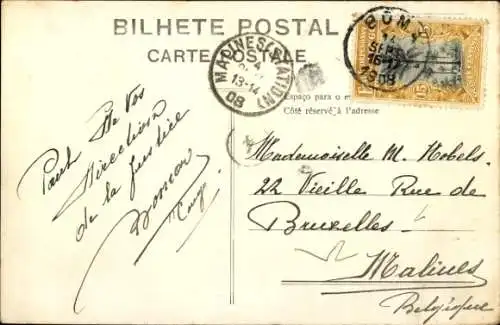 BILHETE POSTAL
CARTE POSTALE
MALINES (STATION)
13-14
08
BOMA
SEPT
16-17
1908
15
Espaço para o
Côté réservé à l'adresse
Paul De Vos
Direction
de la Justice
Boma
Congo
Mademoiselle M. Nobels
22 Vieille Rue de
Bruxelles
Malines
Belgique